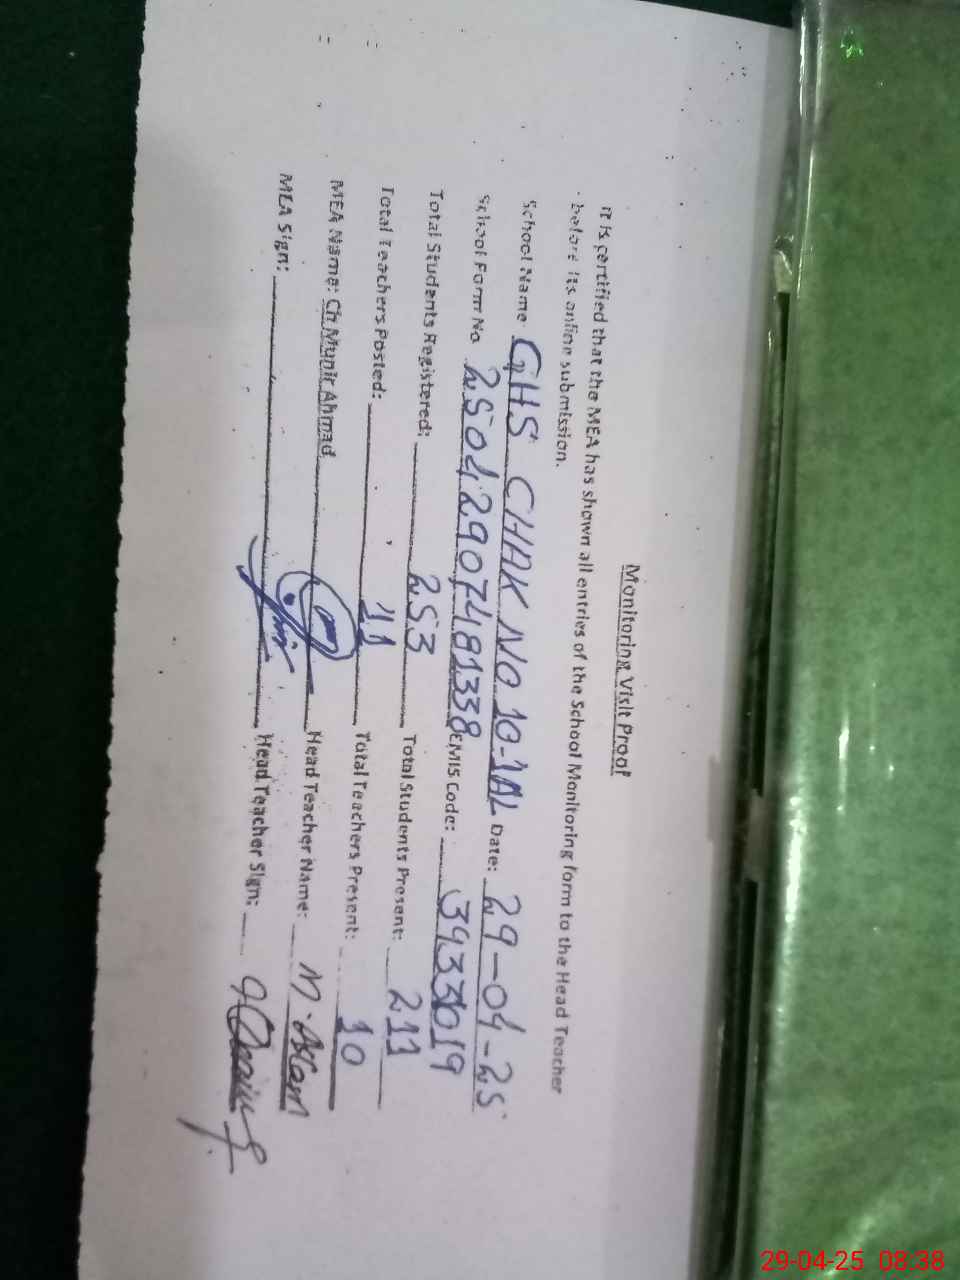 Monitoring Visit Proof
It is certified that the MEA has shown all entries of the School Monitoring form to the Head Teacher
before its online submission.
School Name: GHS CHAK NO 10-1AL Date: 29-04-25
School Form No. 25042907481338 EMIS Code: 39330019
Total Students Registered: 253 Total Students Present: 211
Total Teachers Posted: 11 Total Teachers Present: 10
MEA Name: Ch Munir Ahmad Head Teacher Name: M. Aslam
MEA Sign: Head Teacher Sign:
29-04-25 08:38